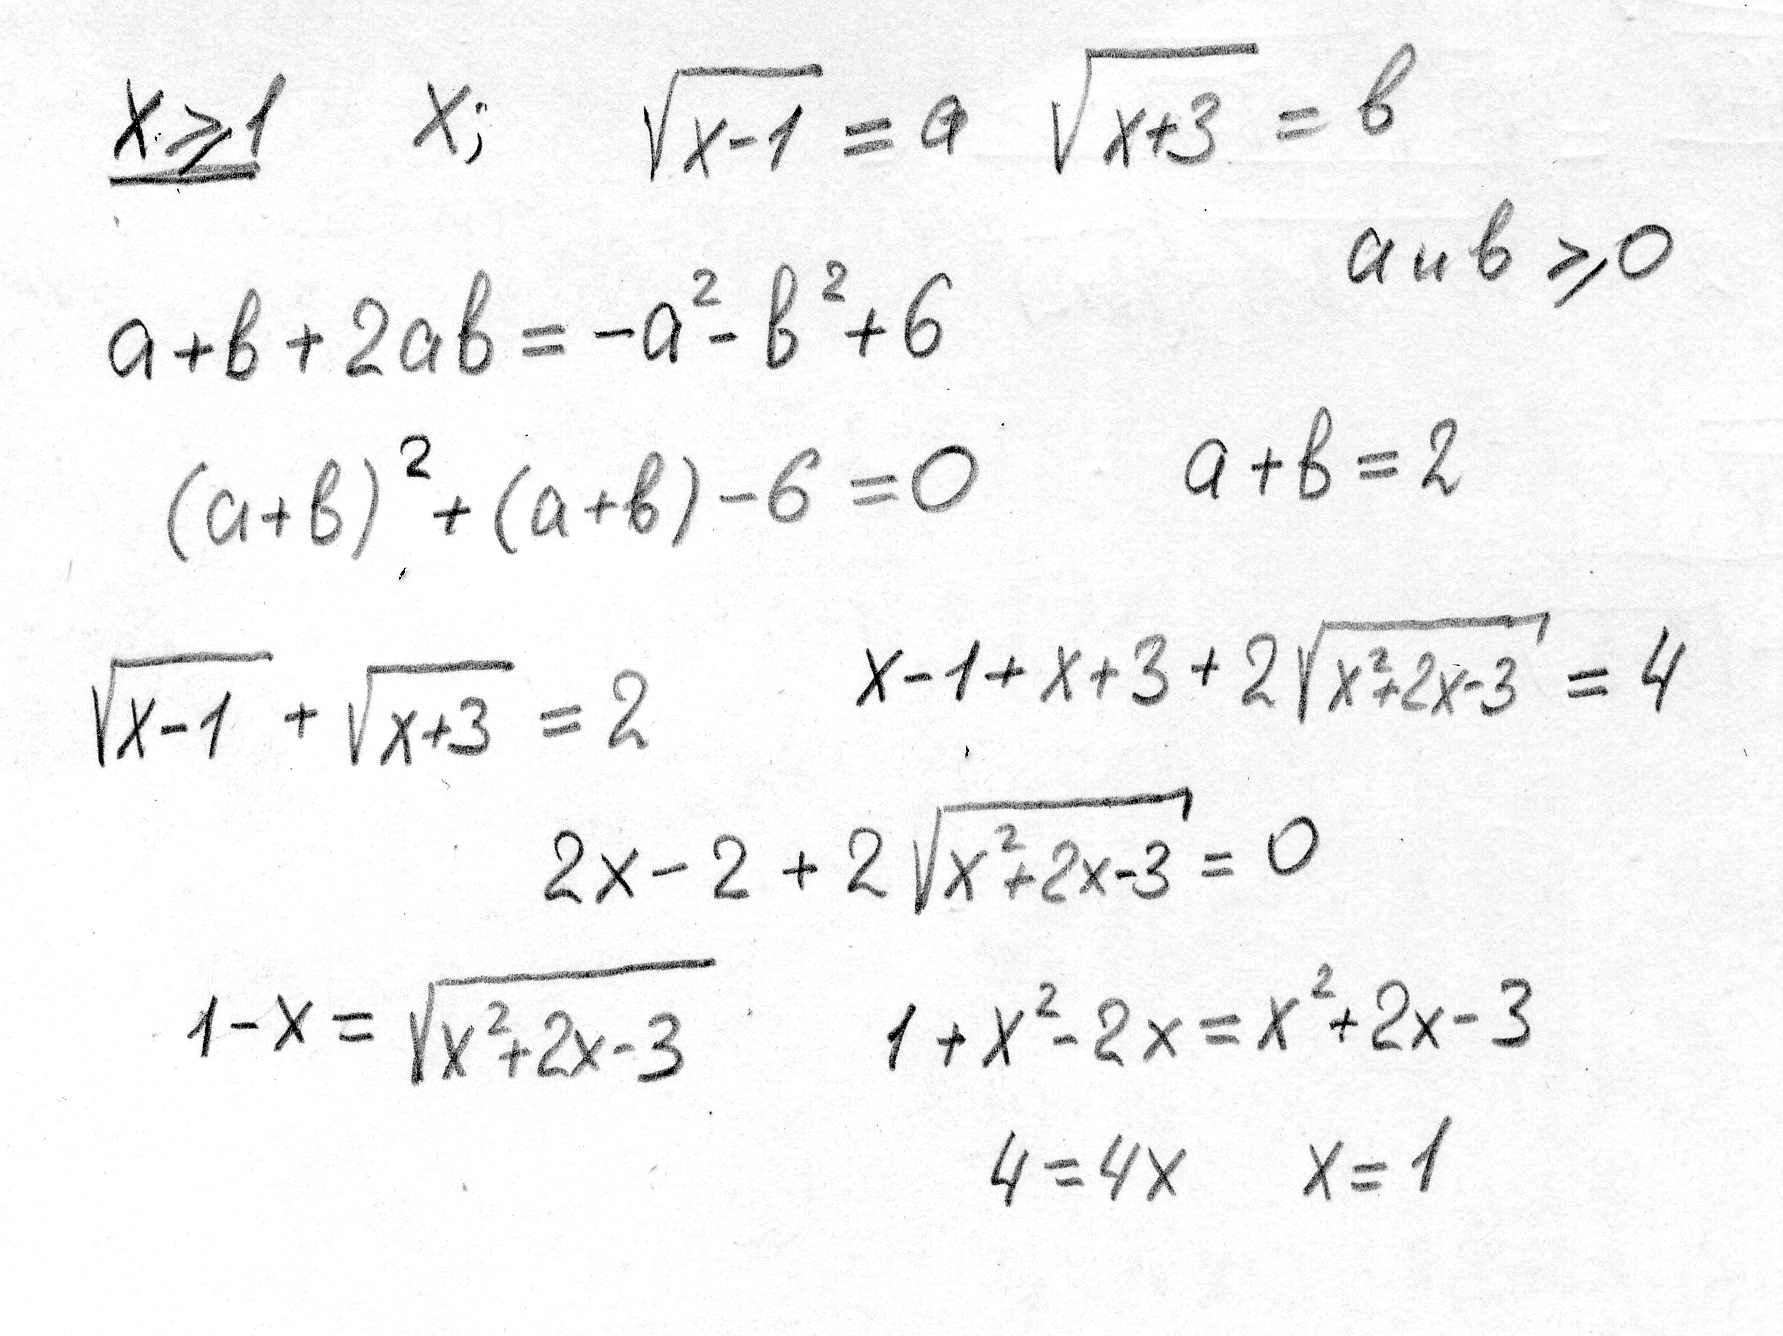 x ⩾ 1 x; √(x-1) = a √(x+3) = b
a и b ⩾ 0
a + b + 2ab = -a² - b² + 6
(a+b)² + (a+b) - 6 = 0 a + b = 2
√(x-1) + √(x+3) = 2 x - 1 + x + 3 + 2√(x²+2x-3) = 4
2x - 2 + 2√(x²+2x-3) = 0
1 - x = √(x²+2x-3) 1 + x² - 2x = x² + 2x - 3
4 = 4x x = 1